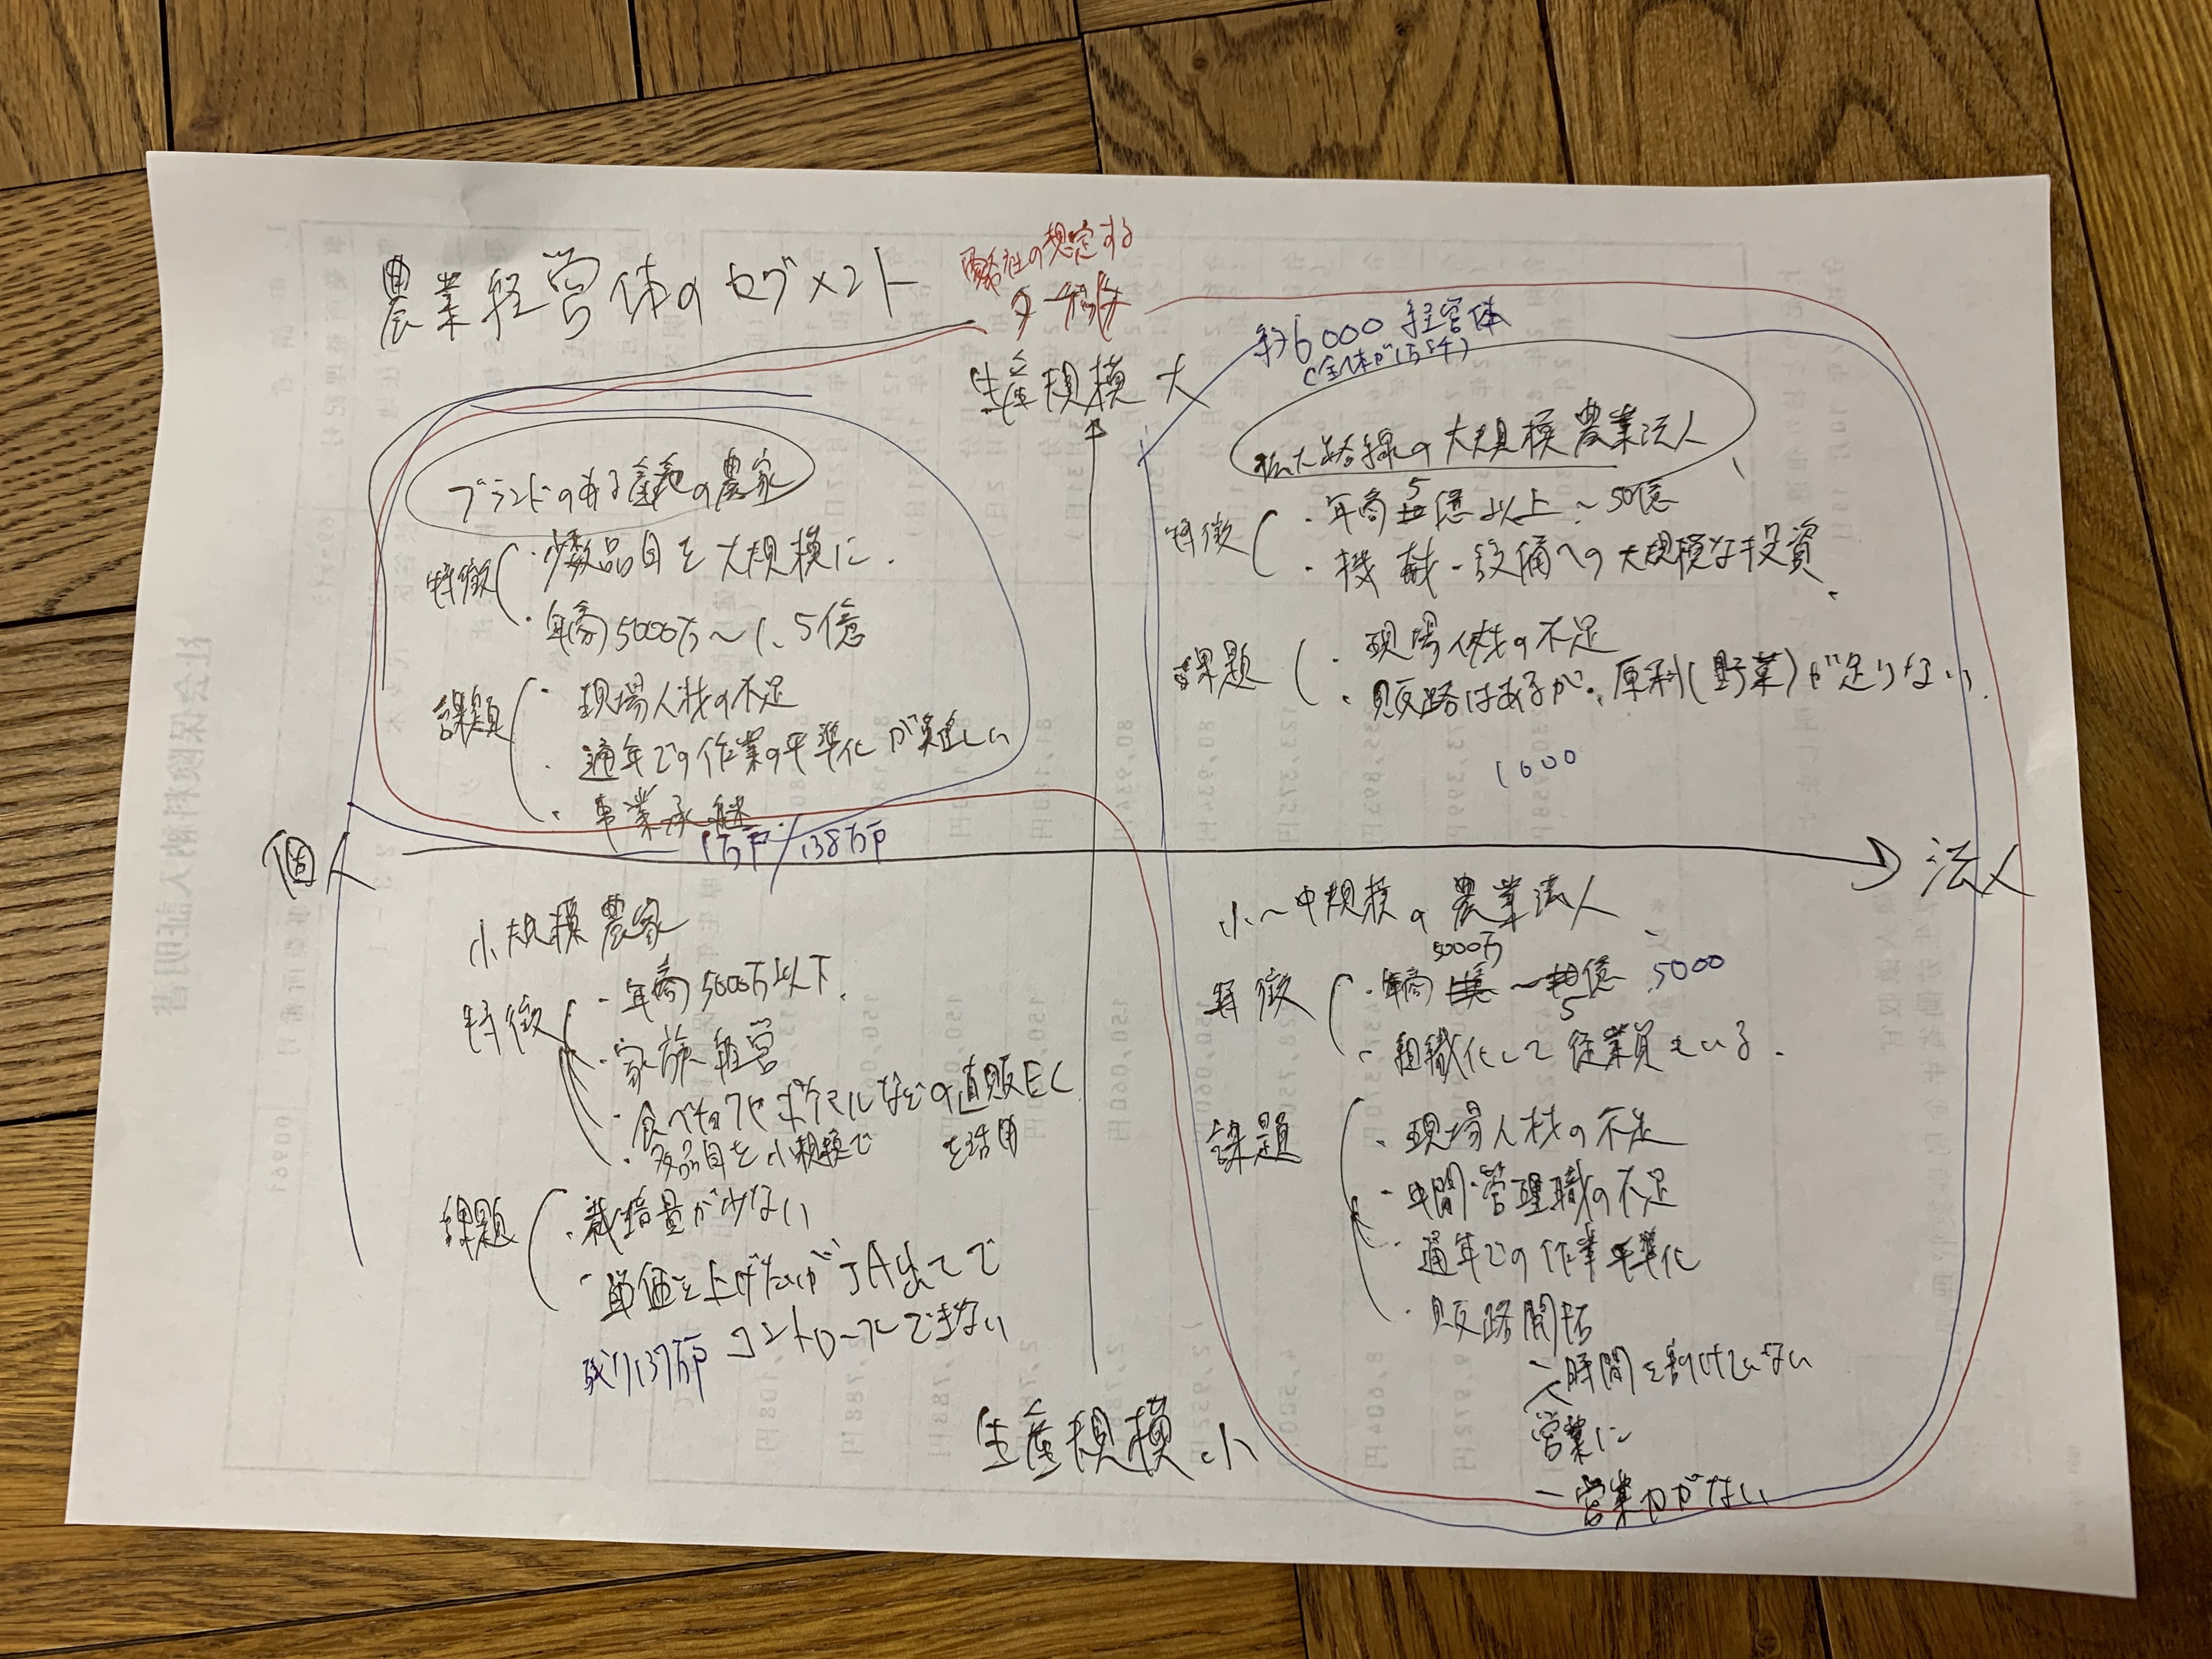 農業経営体のセグメント
社の想定する
生産規模 大
約6000 経営体
(全体が1万5千)
ブランドのある産地の農家
特徴
・少数品目を大規模に.
・年商5000万〜1.5億
課題
・現場人材の不足
・通年での作業の平準化が難しい
・事業承継
1万戸/138万戸
拡大路線の大規模農業法人
特徴
・年商 5億以上〜50億
・機械・設備への大規模な投資.
課題
・現場人材の不足
・販路はあるが、原料(野菜)が足りない.
1000
個人
法人
小規模農家
特徴
・年商5000万以下.
・家族経営
・食べチョクやポケマルなどの直販EC
を活用
・多品目を小規模で
課題
・栽培量が少ない
・単価を上げたいがJA出しで
コントロールできない
残り137万戸
小〜中規模の農業法人
特徴
・年商 5000万〜5億 5000
・組織化して従業員もいる.
課題
・現場人材の不足
・中間・管理職の不足
・通年での作業平準化
・販路開拓
時間を割けていない
営業に
- 営業力がない
生産規模 小